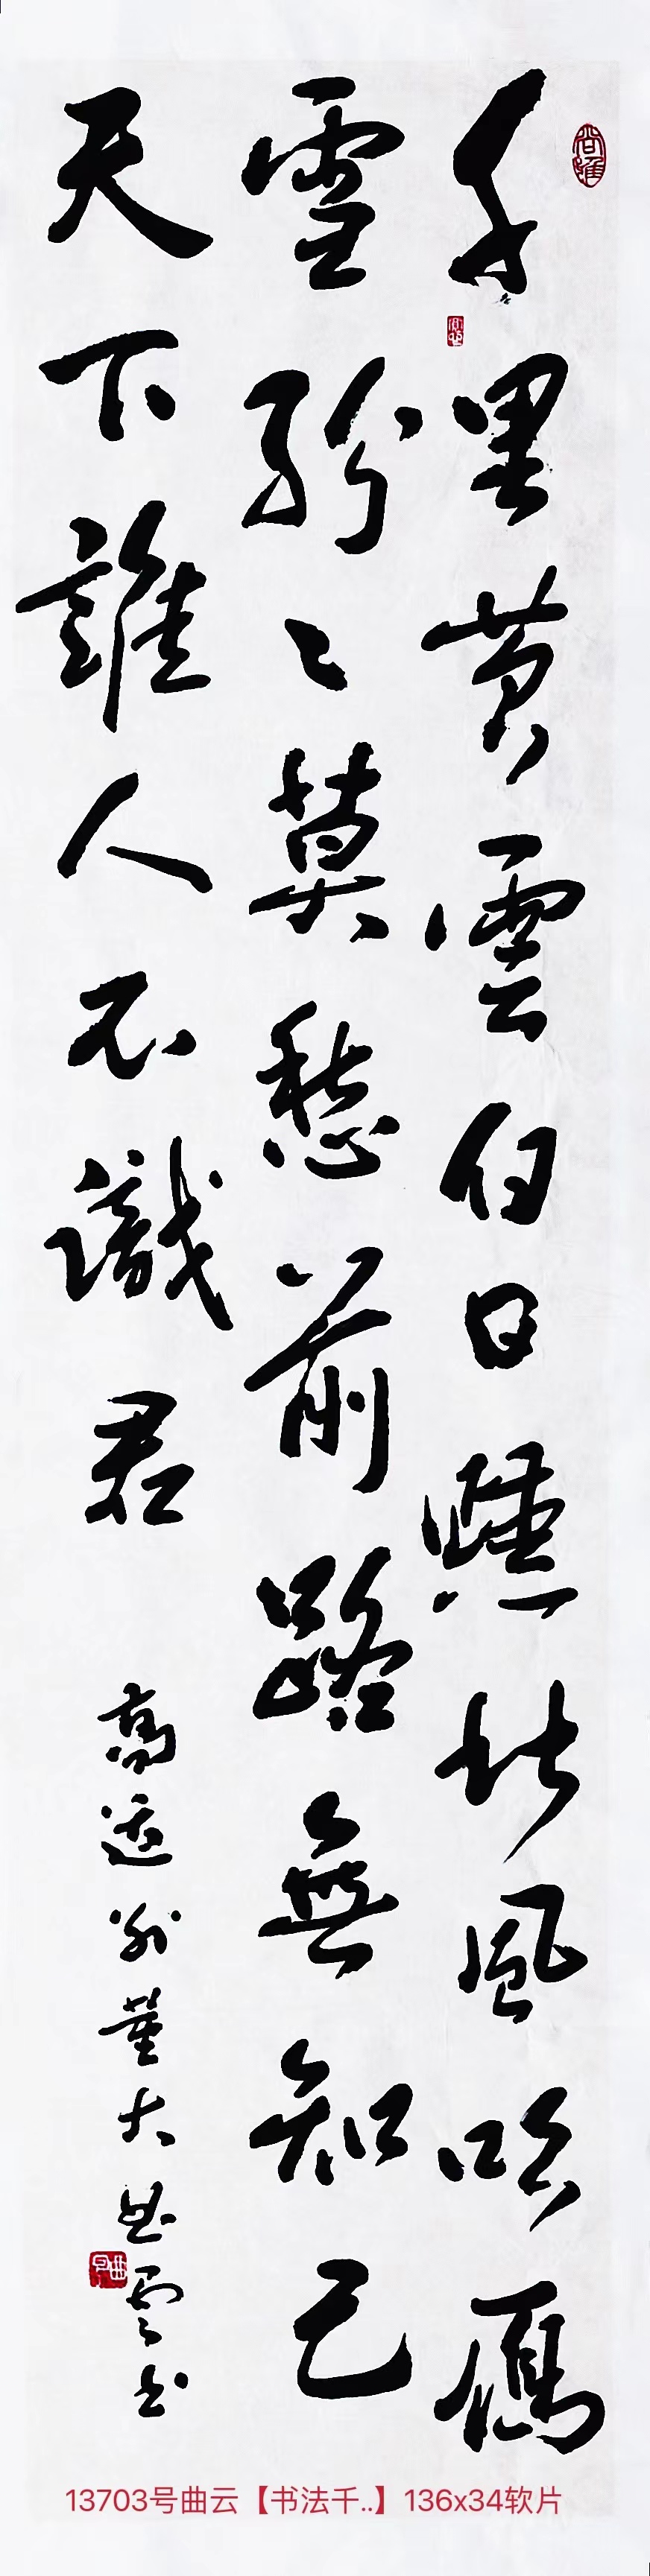 千里黄雲白日曛北風吹雁
雪紛〻莫愁前路無知己
天下誰人不識君
高適別董大曲雲书
曲云
13703号曲云【书法千..】136x34软片